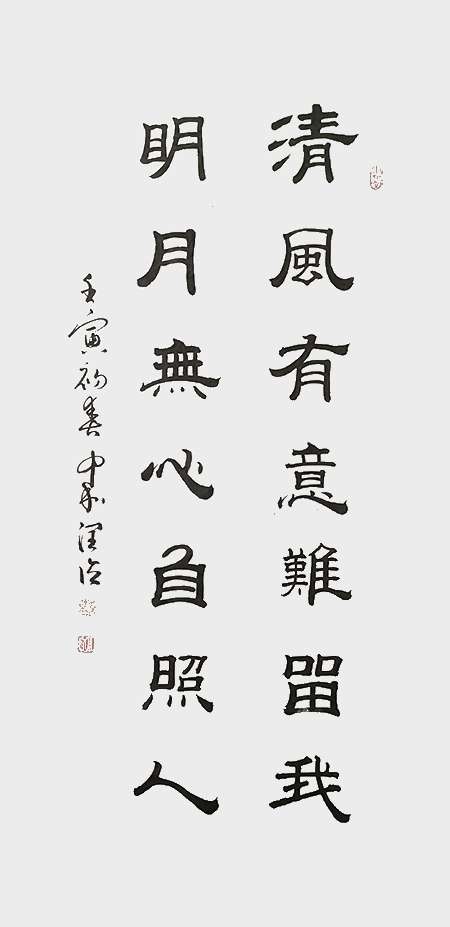 清風有意難留我
明月無心自照人
壬寅初春